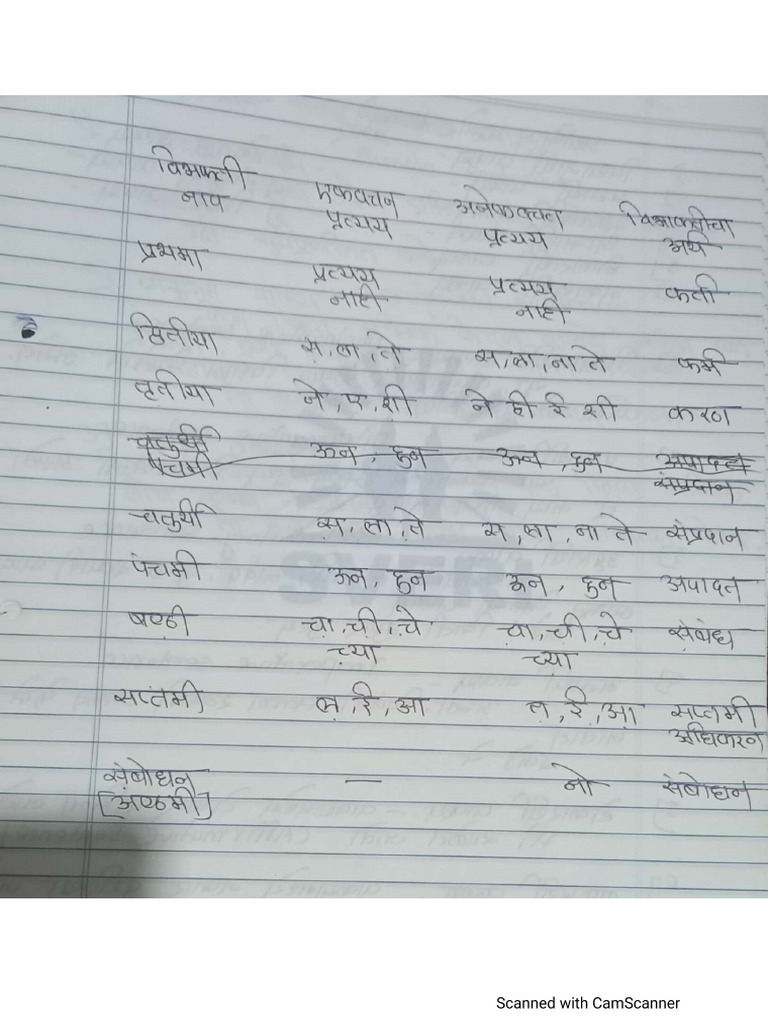 विभक्ती नाव एकवचन प्रत्यय अनेकवचन प्रत्यय विभक्तीचा अर्थ
प्रथमा प्रत्यय नाही प्रत्यय नाही कर्ता
द्वितीया स, ला, ते स, ला, ना ते कर्म
तृतीया ने, ए, शी ने ही ई शी करण
चतुर्थी पंचमी ऊन, हून ऊन, हून अपादान संप्रदान
चतुर्थी स, ला, ते स, ला, ना ते संप्रदान
पंचमी ऊन, हून ऊन, हून अपादन
षष्ठी चा, ची, चे च्या चा, ची, चे च्या संबंध
सप्तमी त, ई, आ त, ई, आ सप्तमी अधिकरन
संबोधन [अष्ठमी] — नो संबोधन
SVERI
Scanned with CamScanner